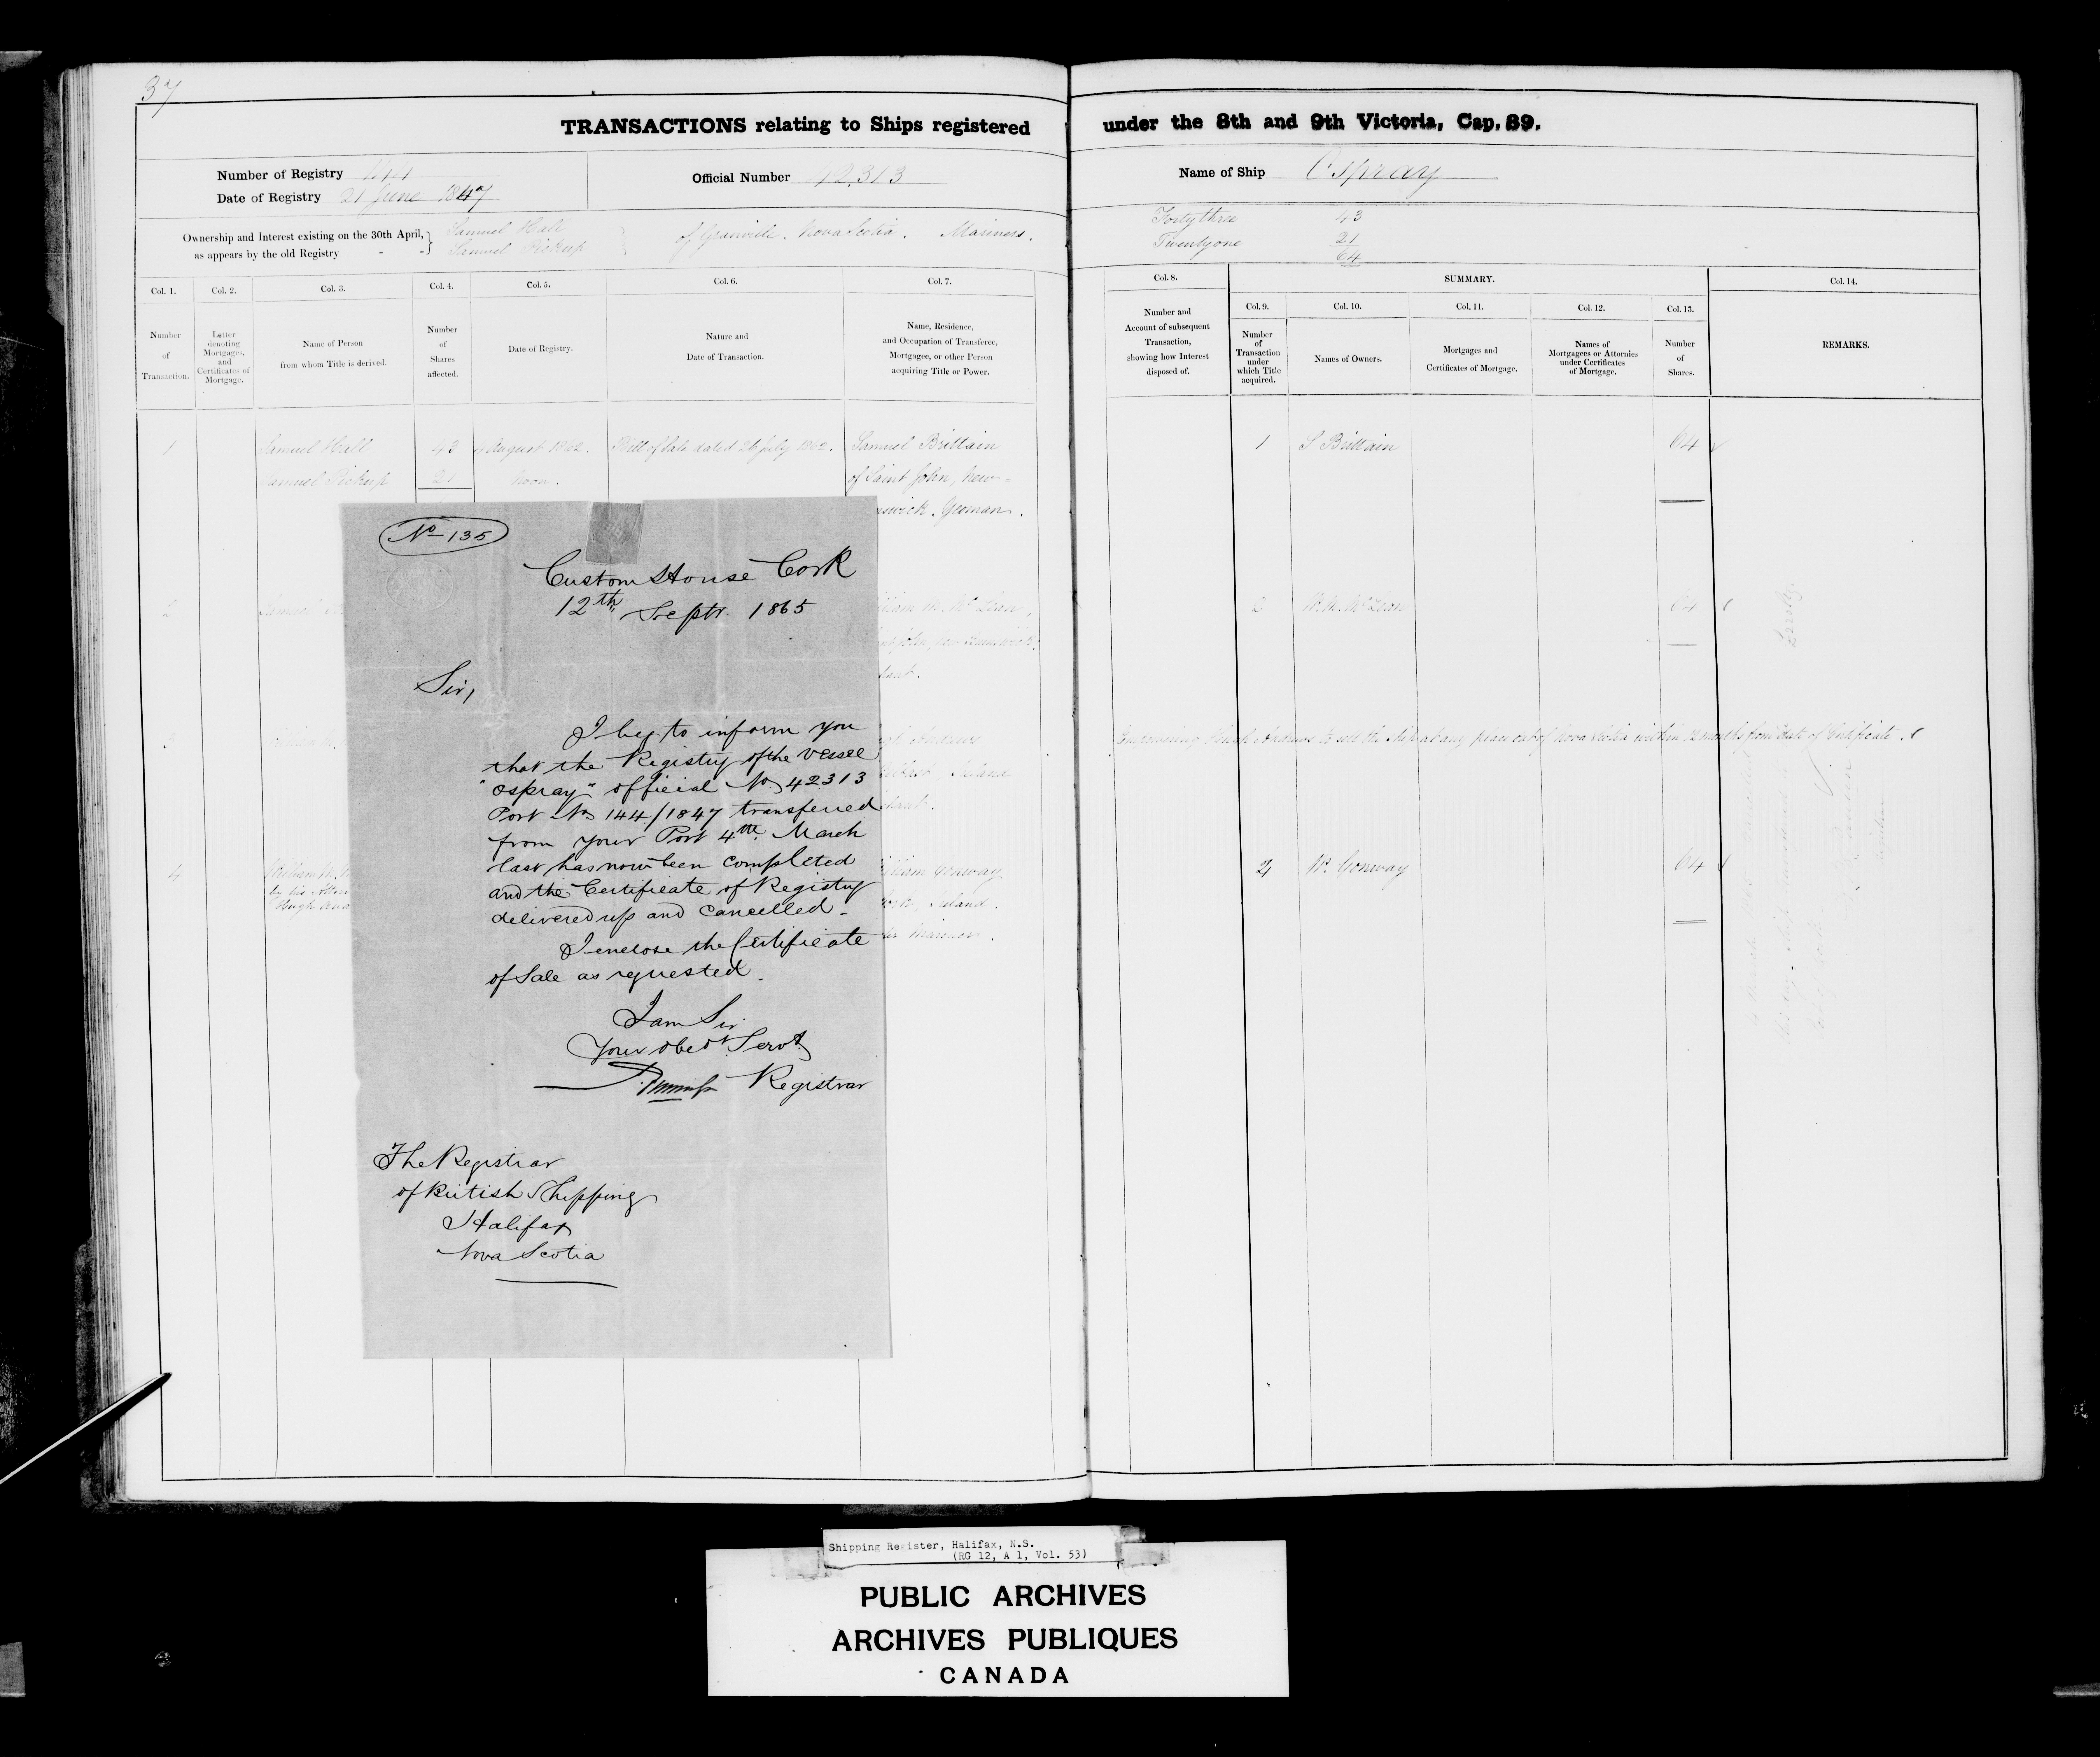 37
TRANSACTIONS relating to Ships registered under the 8th and 9th Victoria, Cap. 89.
Number of Registry 144
Date of Registry 21 June 1847
Official Number 42,313
Name of Ship Ospray
Ownership and Interest existing on the 30th April, as appears by the old Registry
Samuel Hall
Samuel Pickup
of Granville. Nova Scotia. Mariners.
Forty three 43
Twenty one 21
64
Col. 1.
Number of Transaction.
Col. 2.
Letter denoting Mortgages, and Certificates of Mortgage.
Col. 3.
Name of Person from whom Title is derived.
Col. 4.
Number of Shares affected.
Col. 5.
Date of Registry.
Col. 6.
Nature and Date of Transaction.
Col. 7.
Name, Residence, and Occupation of Transferee, Mortgagee, or other Person acquiring Title or Power.
Col. 8.
Number and Account of subsequent Transaction, showing how Interest disposed of.
SUMMARY.
Col. 9.
Number of Transaction under which Title acquired.
Col. 10.
Names of Owners.
Col. 11.
Mortgages and Certificates of Mortgage.
Col. 12.
Names of Mortgagees or Attornies under Certificates of Mortgage.
Col. 13.
Number of Shares.
Col. 14.
REMARKS.
1 Samuel Hall 43 4 August 1862. Bill of Sale dated 26 July 1862. Samuel Brittain
Samuel Pickup 21 Noon. of Saint John, New-
1 S Brittain 64
2 Samuel
2 W. M. McLean 64
3
Empowering Hugh Andrews to sell the Ship at any place out of Nova Scotia within 12 months from date of Certificate.
4 William
by his
Hugh
William Conway
Ireland.
4 W. Conway 64
No 135
Custom House Cork
12th Septr. 1865
Sir,
I beg to inform you
that the Registry of the Vessel
"Ospray" official No 42313
Port No 144/1847 transferred
from your Port 4th March
last has now been completed
and the Certificate of Registry
delivered up and cancelled -
I enclose the Certificate
of Sale as requested.
I am Sir
Your obedt Servt
Registrar
The Registrar
of British Shipping
Halifax
Nova Scotia
Shipping Register, Halifax, N.S.
(RG 12, A 1, Vol. 53)
PUBLIC ARCHIVES
ARCHIVES PUBLIQUES
CANADA